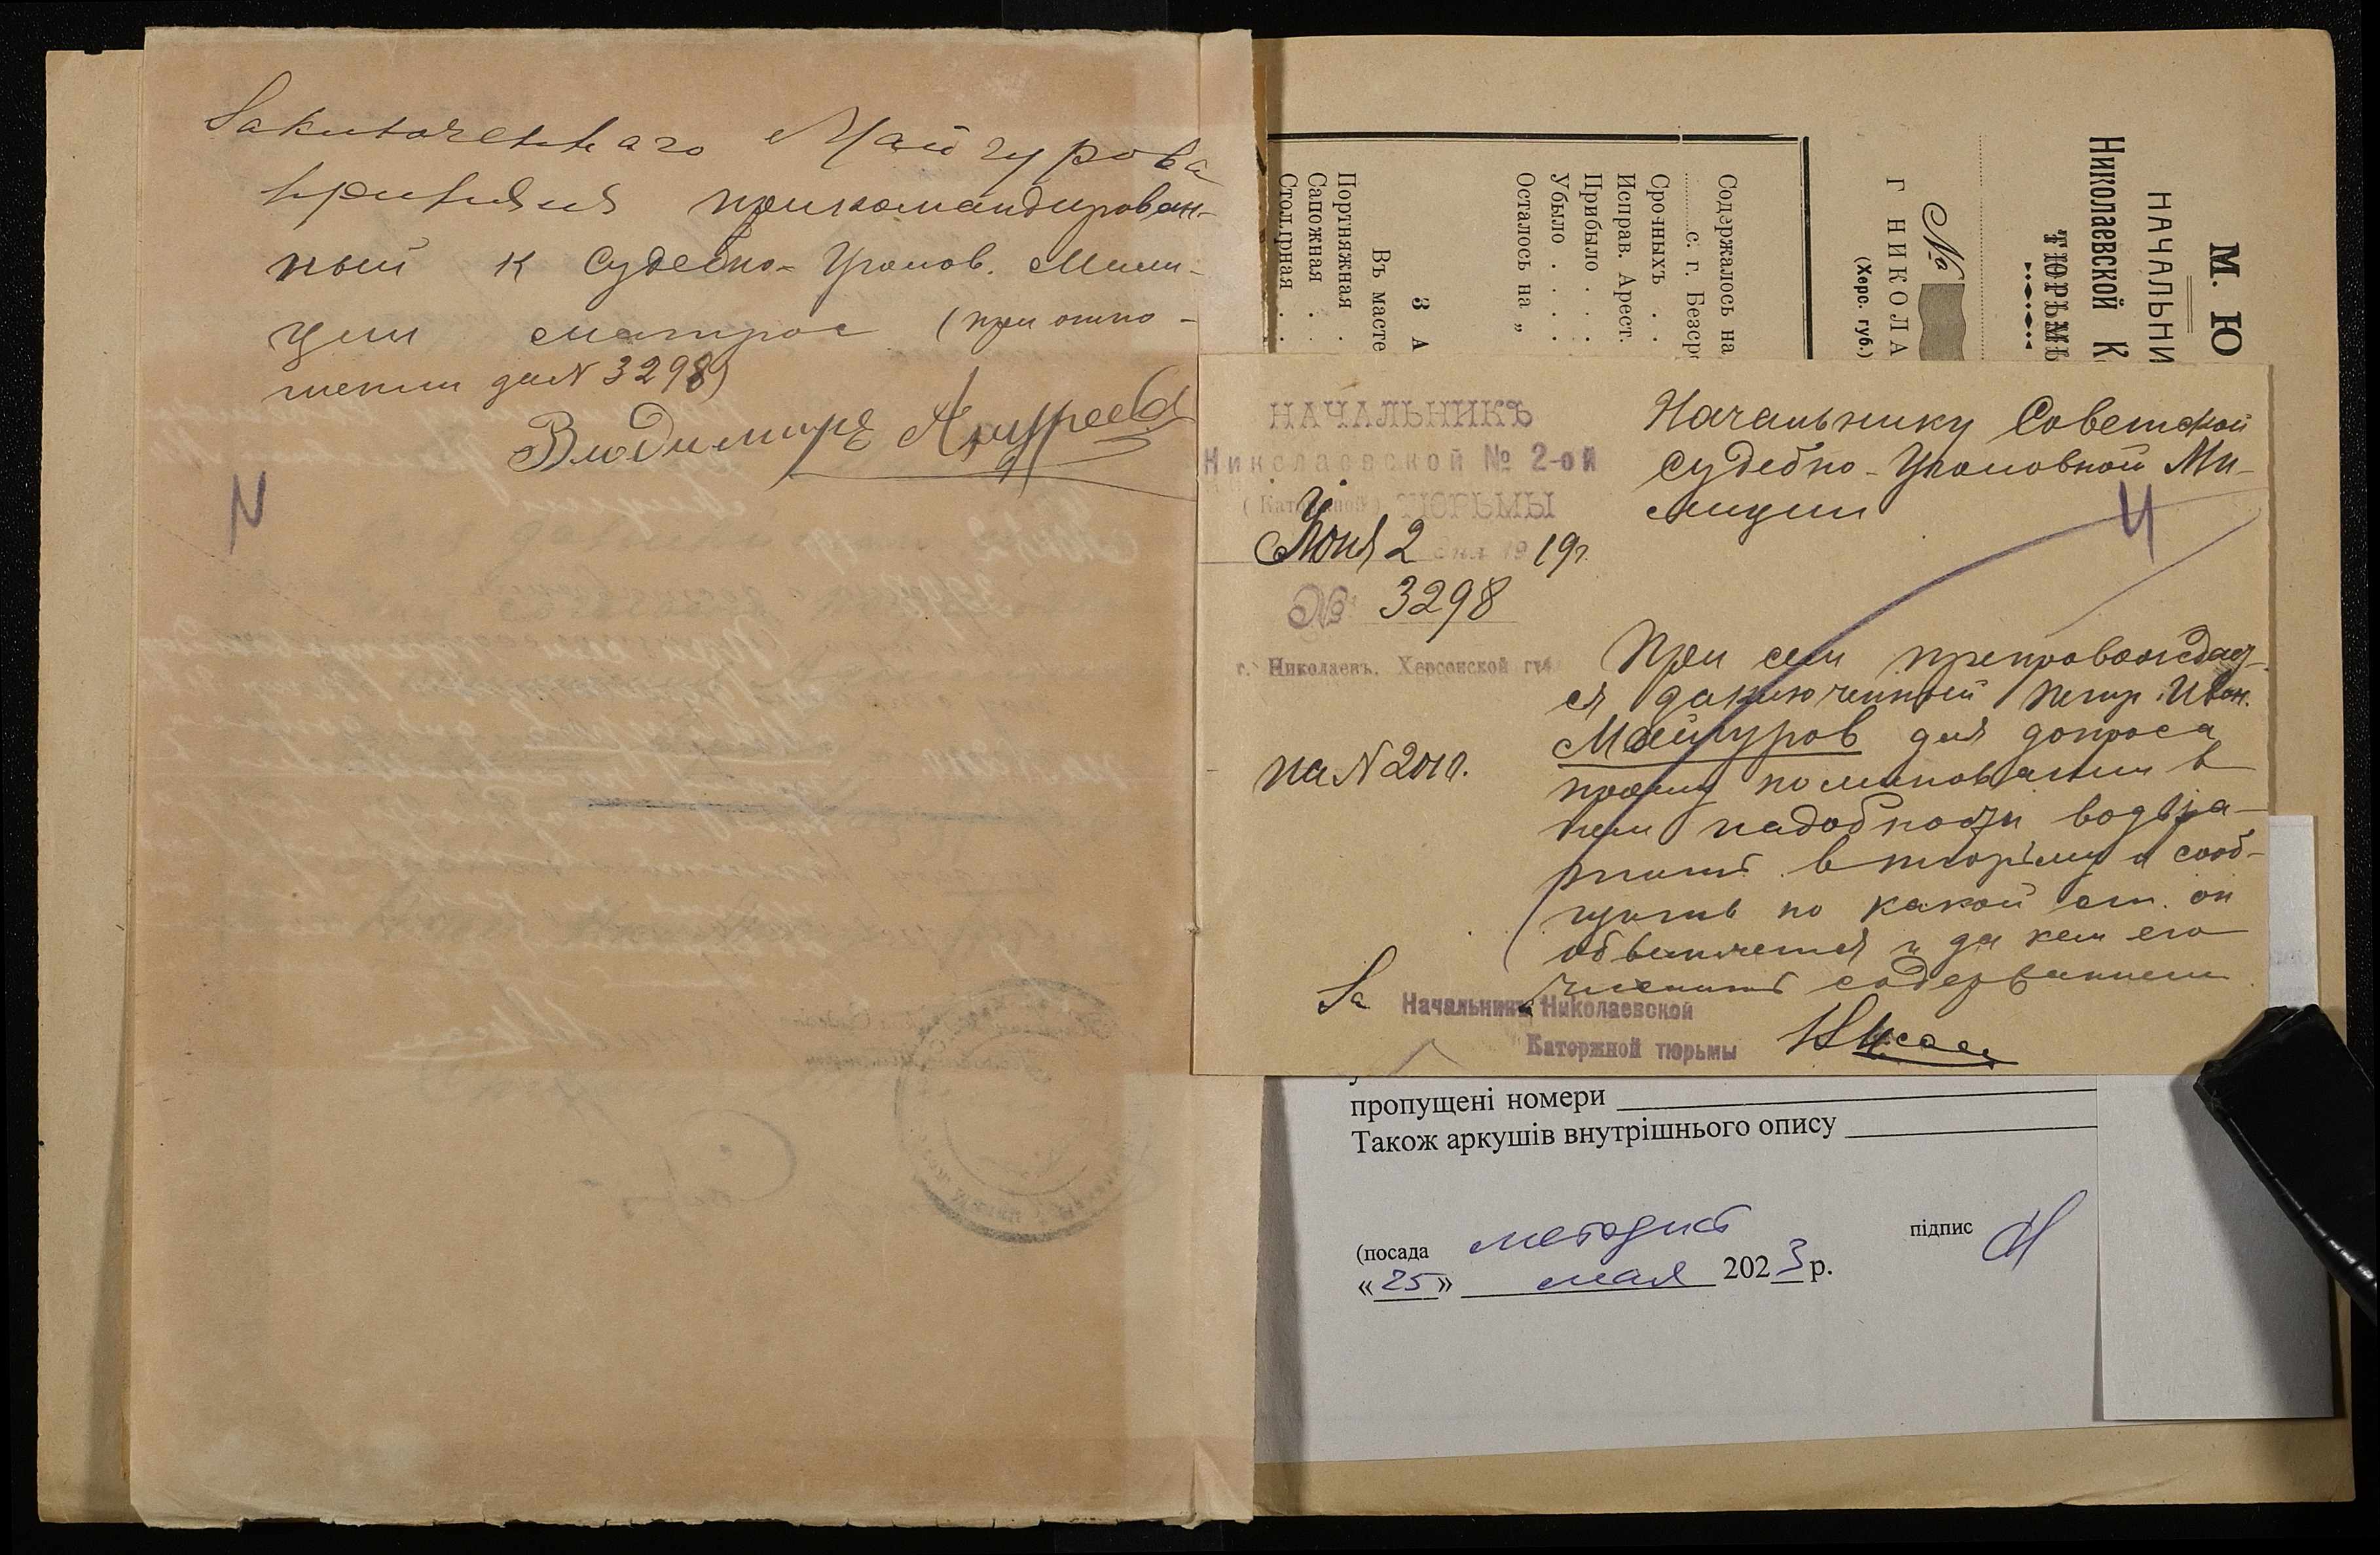 Заключеннаго Майгурова
принял прикомандирован-
ный к Судебно-Уголов. Мили-
ции матрос (при отно-
шении за N 3298)
Владимиръ Андреев
N
М. Ю
НАЧАЛЬНИ
Николаевской К
ТЮРЬМЫ
№
Г НИКОЛА
(Херс. губ.)
Содержалось на
с. г. Безср
Срочныхъ . .
Исправ. Арест.
Прибыло . . .
Убыло . . . .
Осталось на „
З А
Въ масте
Портняжная .
Сапожная . .
Столярная . .
НАЧАЛЬНИКЪ
Николаевской № 2-ой
(Каторжной) ТЮРЬМЫ
Июня 2 дня 1919г.
№ 3298
г. Николаевъ, Херсонской губ.
на N 2010.
Начальнику Советской
Судебно-Уголовной Ми-
лиции
При сем препровождает-
ся заключенный Петр Иван.
Майгуров для допроса
прошу по миновании в
нем надобности возвра-
тить в тюрьму и сооб-
щить по какой ст. он
обвиняется и за кем его
числить содержанием
За Начальникъ Николаевской
Каторжной тюрьмы
пропущені номери
Також аркушів внутрішнього опису
(посада методист підпис
«25» мая 2023 р.